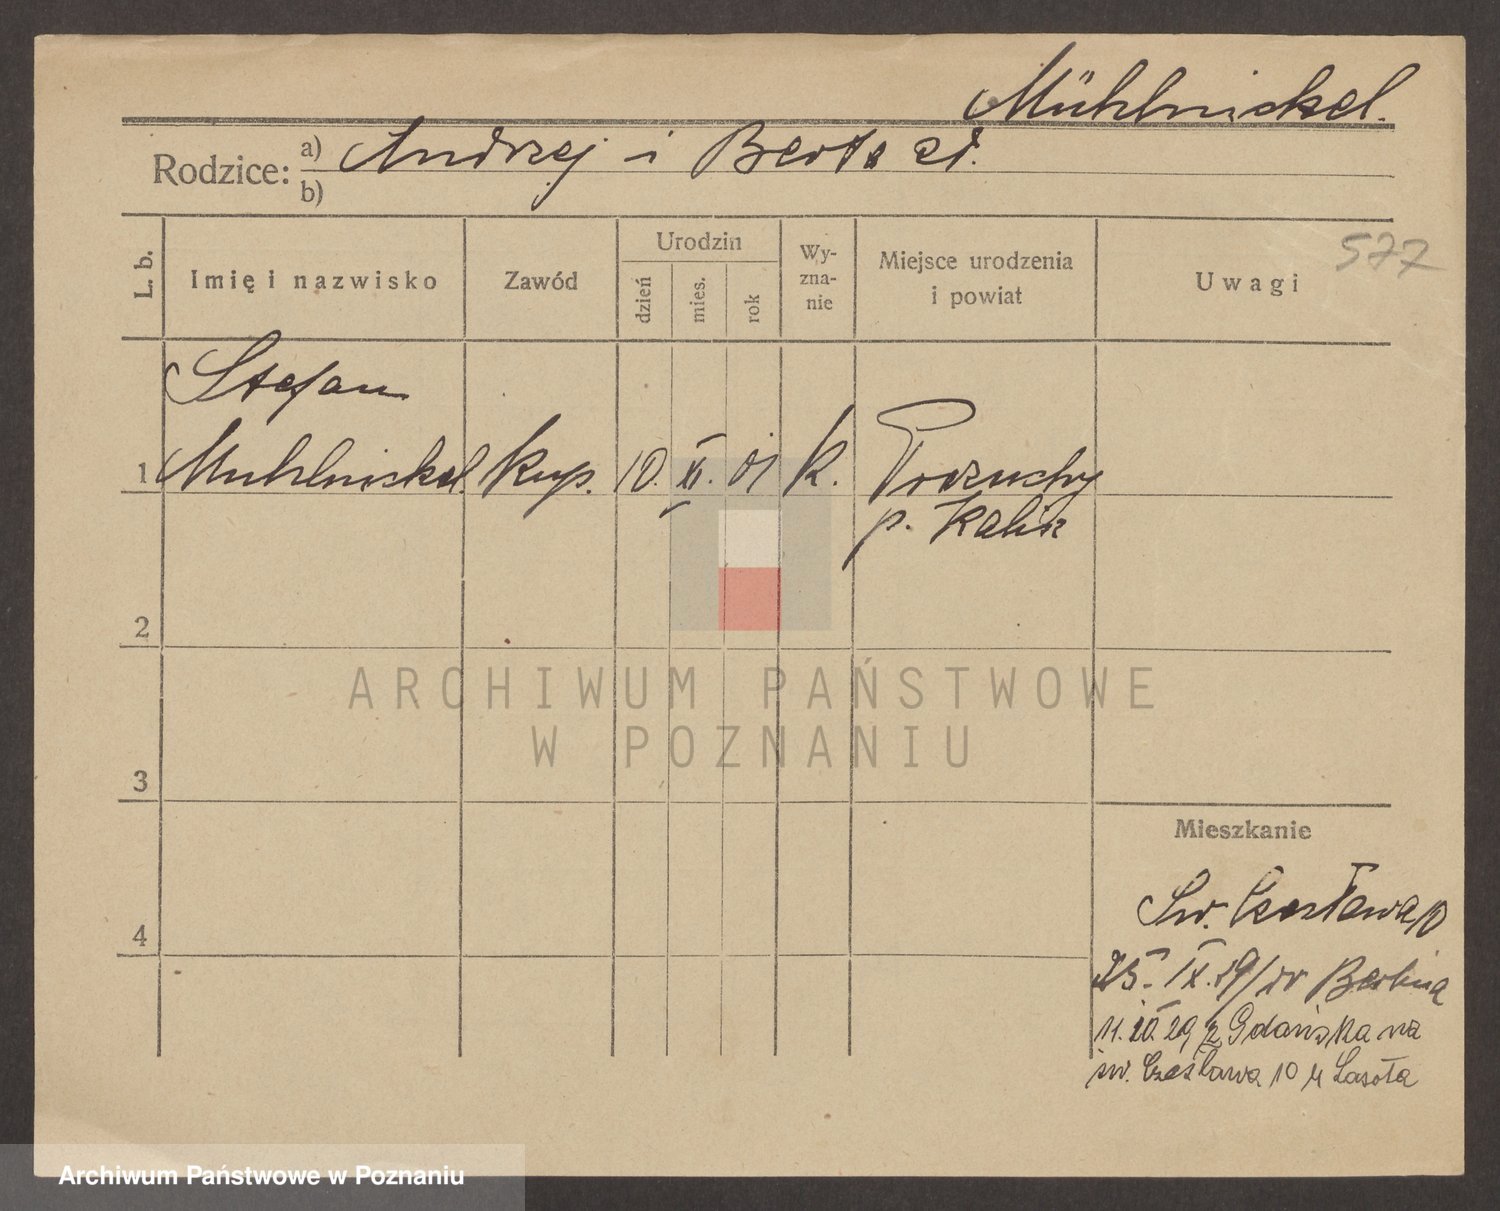 Mühlnickel.
Rodzice: a) Andrzej i Berta
b)
L. b.
Imię i nazwisko
Zawód
Urodzin
dzień
mies.
rok
Wy-
zna-
nie
Miejsce urodzenia
i powiat
Uwagi
577
Stefan
1 Muhlnickel. kup. 10. XI. 01 k.
p. Kalisz
2
3
4
Mieszkanie
Św. Czesława 10
25. IX. 29/ Berlina
11. 29 z Gdańska na
św. Czesława 10 u Lasota
ARCHIWUM PAŃSTWOWE
W POZNANIU
Archiwum Państwowe w Poznaniu